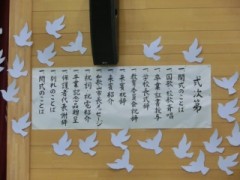 式次第
一、開式のことば
一、国歌、校歌斉唱
一、卒業証書授与
一、学校長式辞
一、教育委員会祝辞
一、来賓祝辞
一、来賓紹介
一、祝詞、祝電紹介
一、卒業記念品贈呈
一、保護者代表謝辞
一、別れのことば
一、閉式のことば